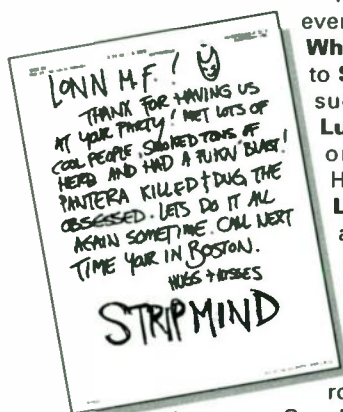 LONN M.F. !
THANK FOR HAVING US
AT YOUR PARTY! MET LOTS OF
COOL PEOPLE, SMOKED TONS OF
HERB AND HAD A FUKN' BLAST!
PANTERA KILLED + DUG THE
OBSESSED. LETS DO IT ALL
AGAIN SOMETIME. CALL NEXT
TIME YOUR IN BOSTON.
HUGS + KISSES
STRIPMIND
ever
Wh
to S
su
Lu
o
H
L
a
ro